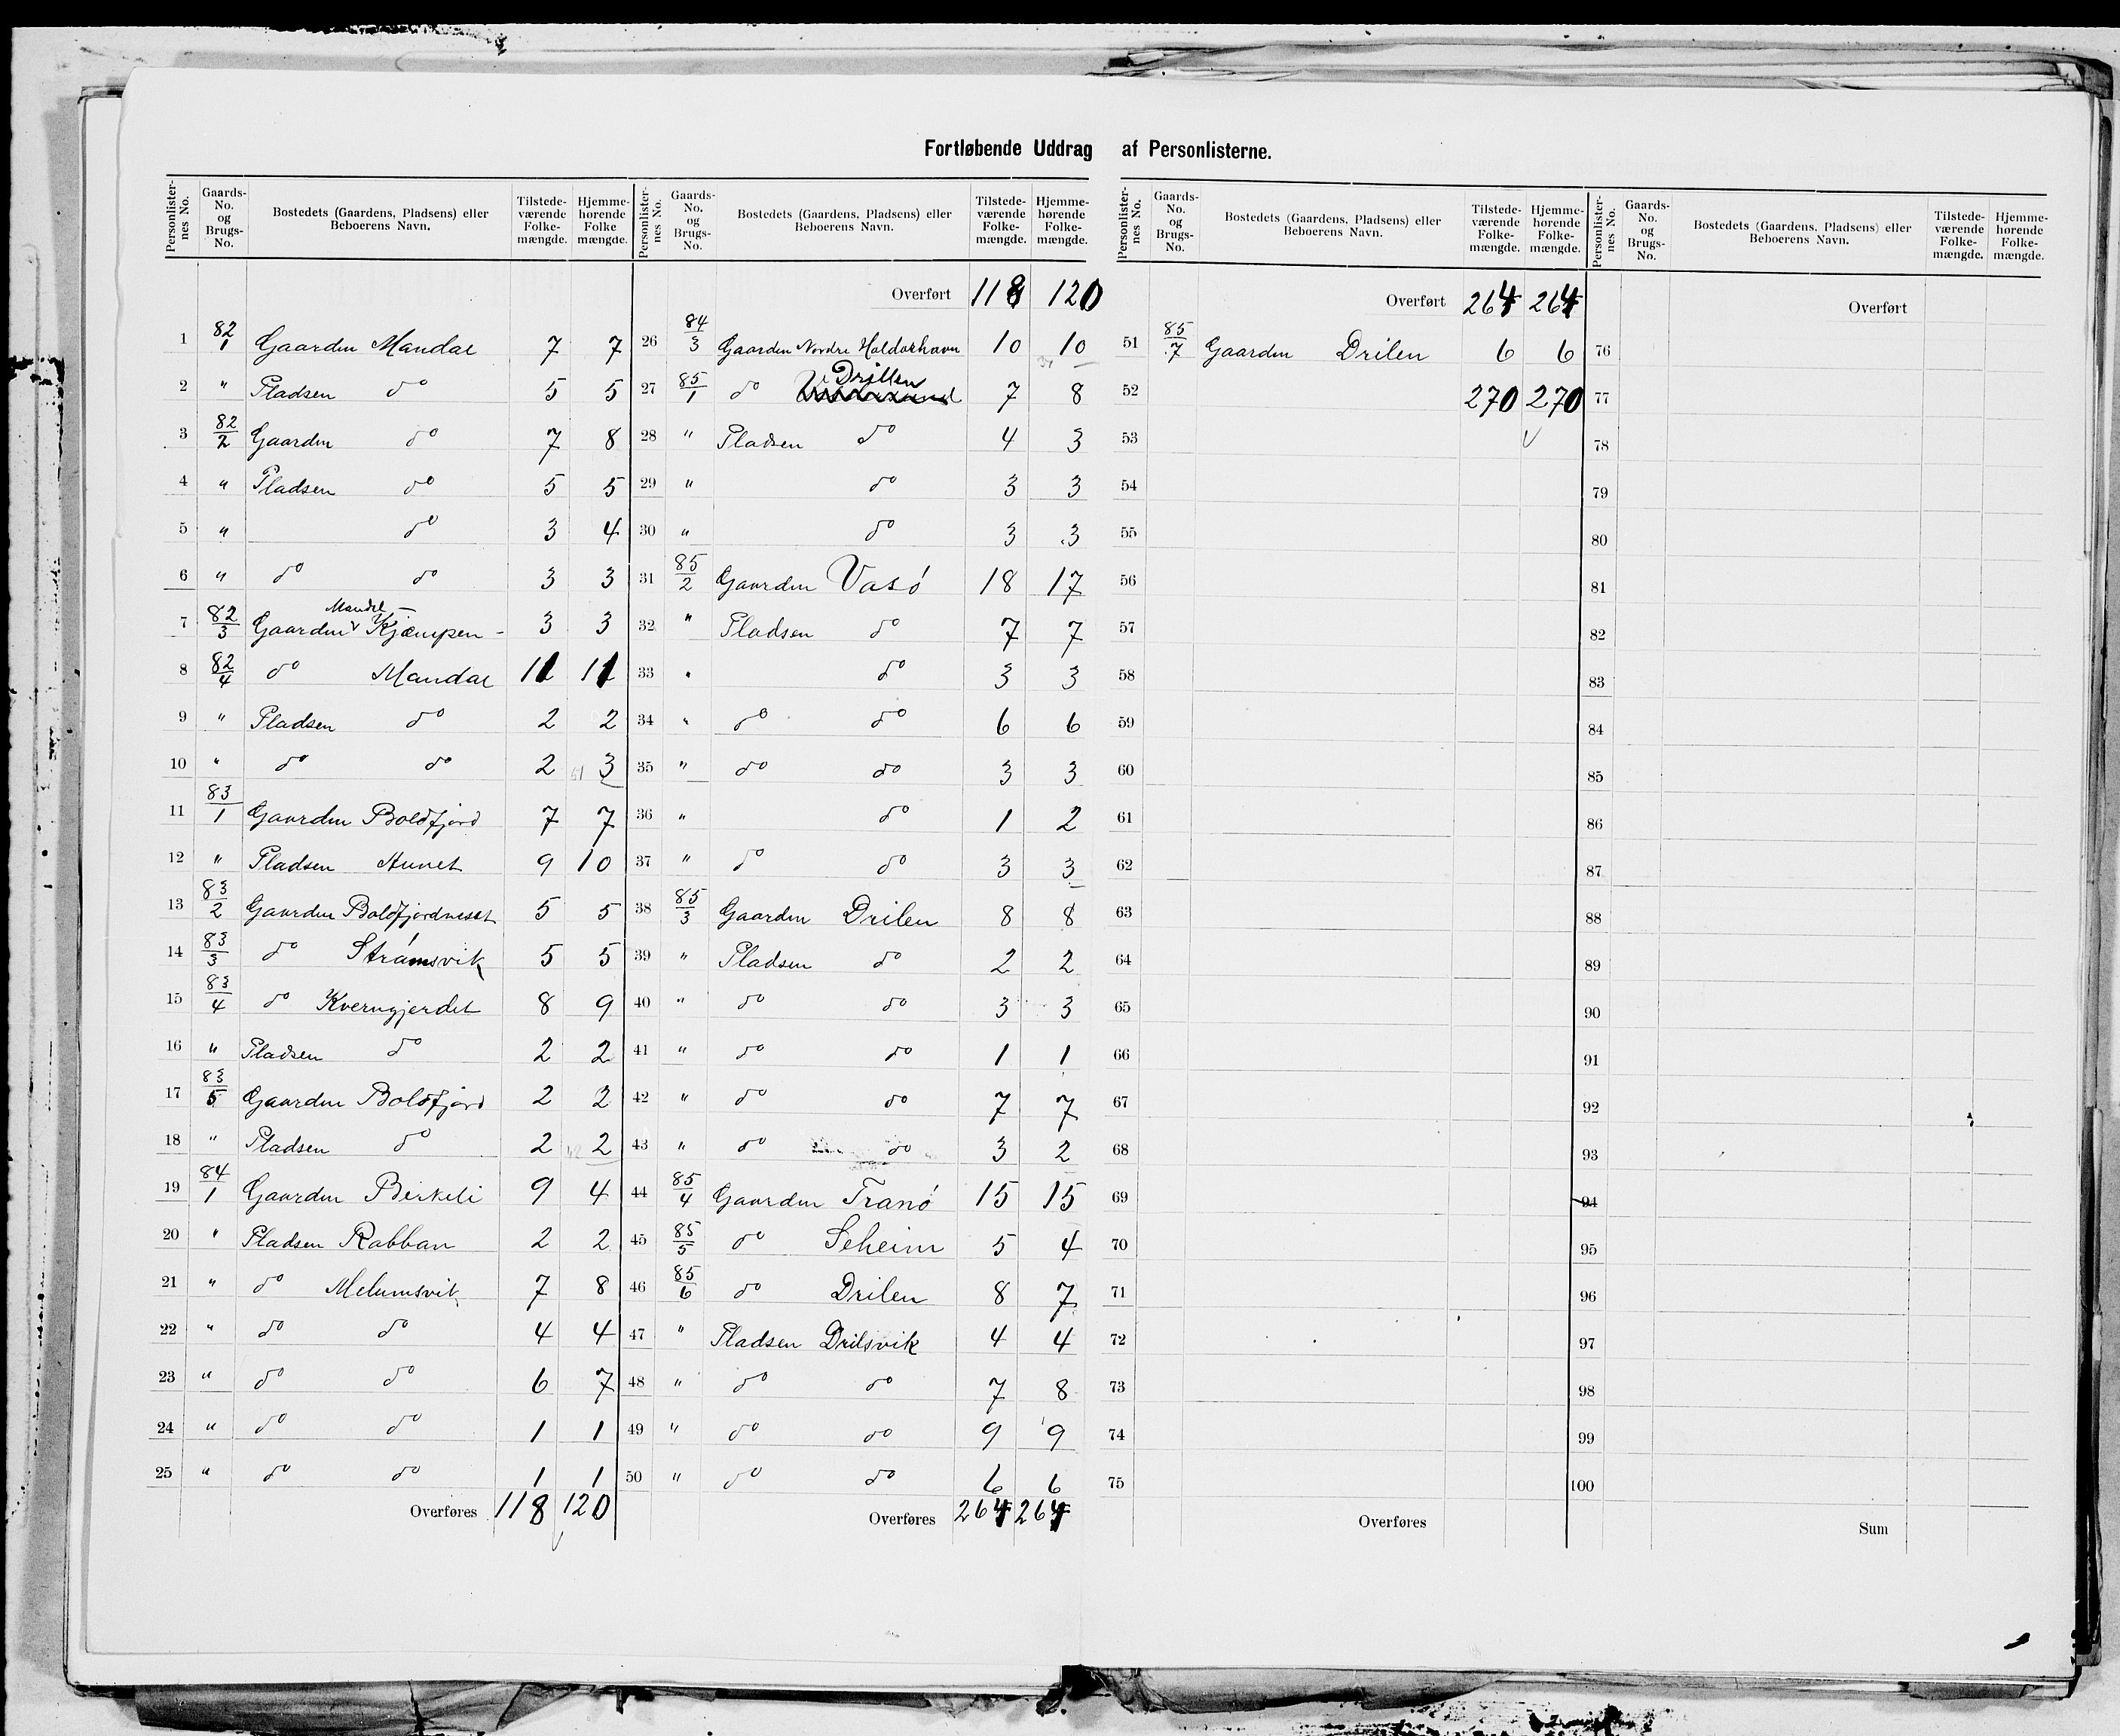 Fortløbende Uddrag af Personlisterne.
Personlisternes No. | Gaards-No. og Brugs-No. | Bostedets (Gaardens, Pladsens) eller Beboerens Navn. | Tilstedeværende Folkemængde. | Hjemmehørende Folkemængde.
1 82/1 Gaarden Mandal 7 7
2 " Pladsen do 5 5
3 82/2 Gaarden do 7 8
4 " Pladsen do 5 5
5 " do 3 4
6 " do do 3 3
7 82/3 Gaarden Mandal - Kjæmpen - 3 3
8 82/4 do Mandal 11 11
9 " Pladsen do 2 2
10 " do do 2 3
11 83/1 Gaarden Boldfjord 7 7
12 " Pladsen Aunet 9 10
13 83/2 Gaarden Boldfjordnesset 5 5
14 83/3 do Strømsvik 5 5
15 83/4 do Kverngjerdet 8 9
16 " Pladsen do 2 2
17 83/5 Gaarden Boldfjord 2 2
18 " Pladsen do 2 2
19 84/1 Gaarden Birkeli 9 4
20 " Pladsen Rabban 2 2
21 " do Melumsvik 7 8
22 " do do 4 4
23 " do do 6 7
24 " do do 1 1
25 " do do 1 1
Overføres 118 120
Personlisternes No. | Gaards-No. og Brugs-No. | Bostedets (Gaardens, Pladsens) eller Beboerens Navn. | Tilstedeværende Folkemængde. | Hjemmehørende Folkemængde.
Overført 118 120
26 84/3 Gaarden Nordre Haldorhavn 10 10
27 85/1 do Drillen 7 8
28 " Pladsen do 4 3
29 " do 3 3
30 " do 3 3
31 85/2 Gaarden Vasø 18 17
32 " Pladsen do 7 7
33 " do 3 3
34 " do do 6 6
35 " do do 3 3
36 " do 1 2
37 " do do 3 3
38 85/3 Gaarden Drilen 8 8
39 " Pladsen do 2 2
40 " do do 3 3
41 " do do 1 1
42 " do do 7 7
43 " do do 3 2
44 85/4 Gaarden Tranø 15 15
45 85/5 do Seheim 5 4
46 85/6 do Drilen 8 7
47 " Pladsen Drilsvik 4 4
48 " do do 7 8
49 " do do 9 9
50 " do do 6 6
Overføres 264 264
Personlisternes No. | Gaards-No. og Brugs-No. | Bostedets (Gaardens, Pladsens) eller Beboerens Navn. | Tilstedeværende Folkemængde. | Hjemmehørende Folkemængde.
Overført 264 264
51 85/7 Gaarden Drilen 6 6
52 270 270
53
54
55
56
57
58
59
60
61
62
63
64
65
66
67
68
69
70
71
72
73
74
75
Overføres
Personlisternes No. | Gaards-No. og Brugs-No. | Bostedets (Gaardens, Pladsens) eller Beboerens Navn. | Tilstedeværende Folkemængde. | Hjemmehørende Folkemængde.
Overført
76
77
78
79
80
81
82
83
84
85
86
87
88
89
90
91
92
93
94
95
96
97
98
99
100
Sum